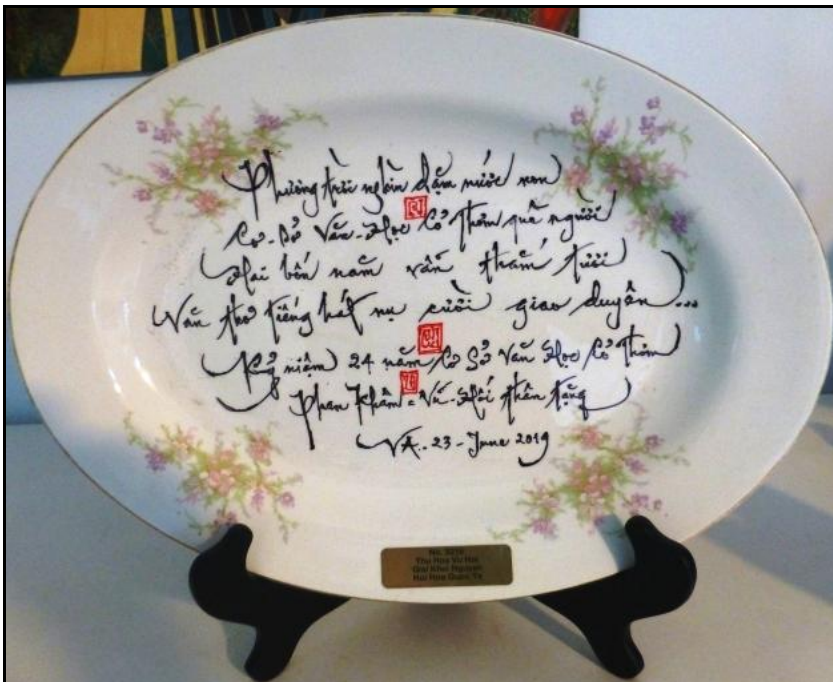 Phương trời nghìn dặm nước non
Cơ-Sở Văn-Học Cỏ Thơm quả người
Hai bốn năm vẫn thắm tươi
Vần thơ tiếng hát nụ cười giao duyên...
Kỷ niệm 24 năm Cơ Sở Văn Học Cỏ Thơm
Phan Khâm = Vũ-Hối thân tặng
VA.. 23 - June 2019
Vu Hoi
Hoi Hoa Quoc Te